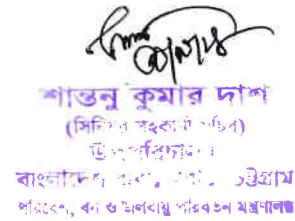 শান্তনু কুমার দাশ
(সিনিয়র সহকারী সচিব)
উপপরিচালক
বাংলাদেশ চট্টগ্রাম
পরিবেশ, বন ও জলবায়ু পরিবর্তন মন্ত্রণালয়